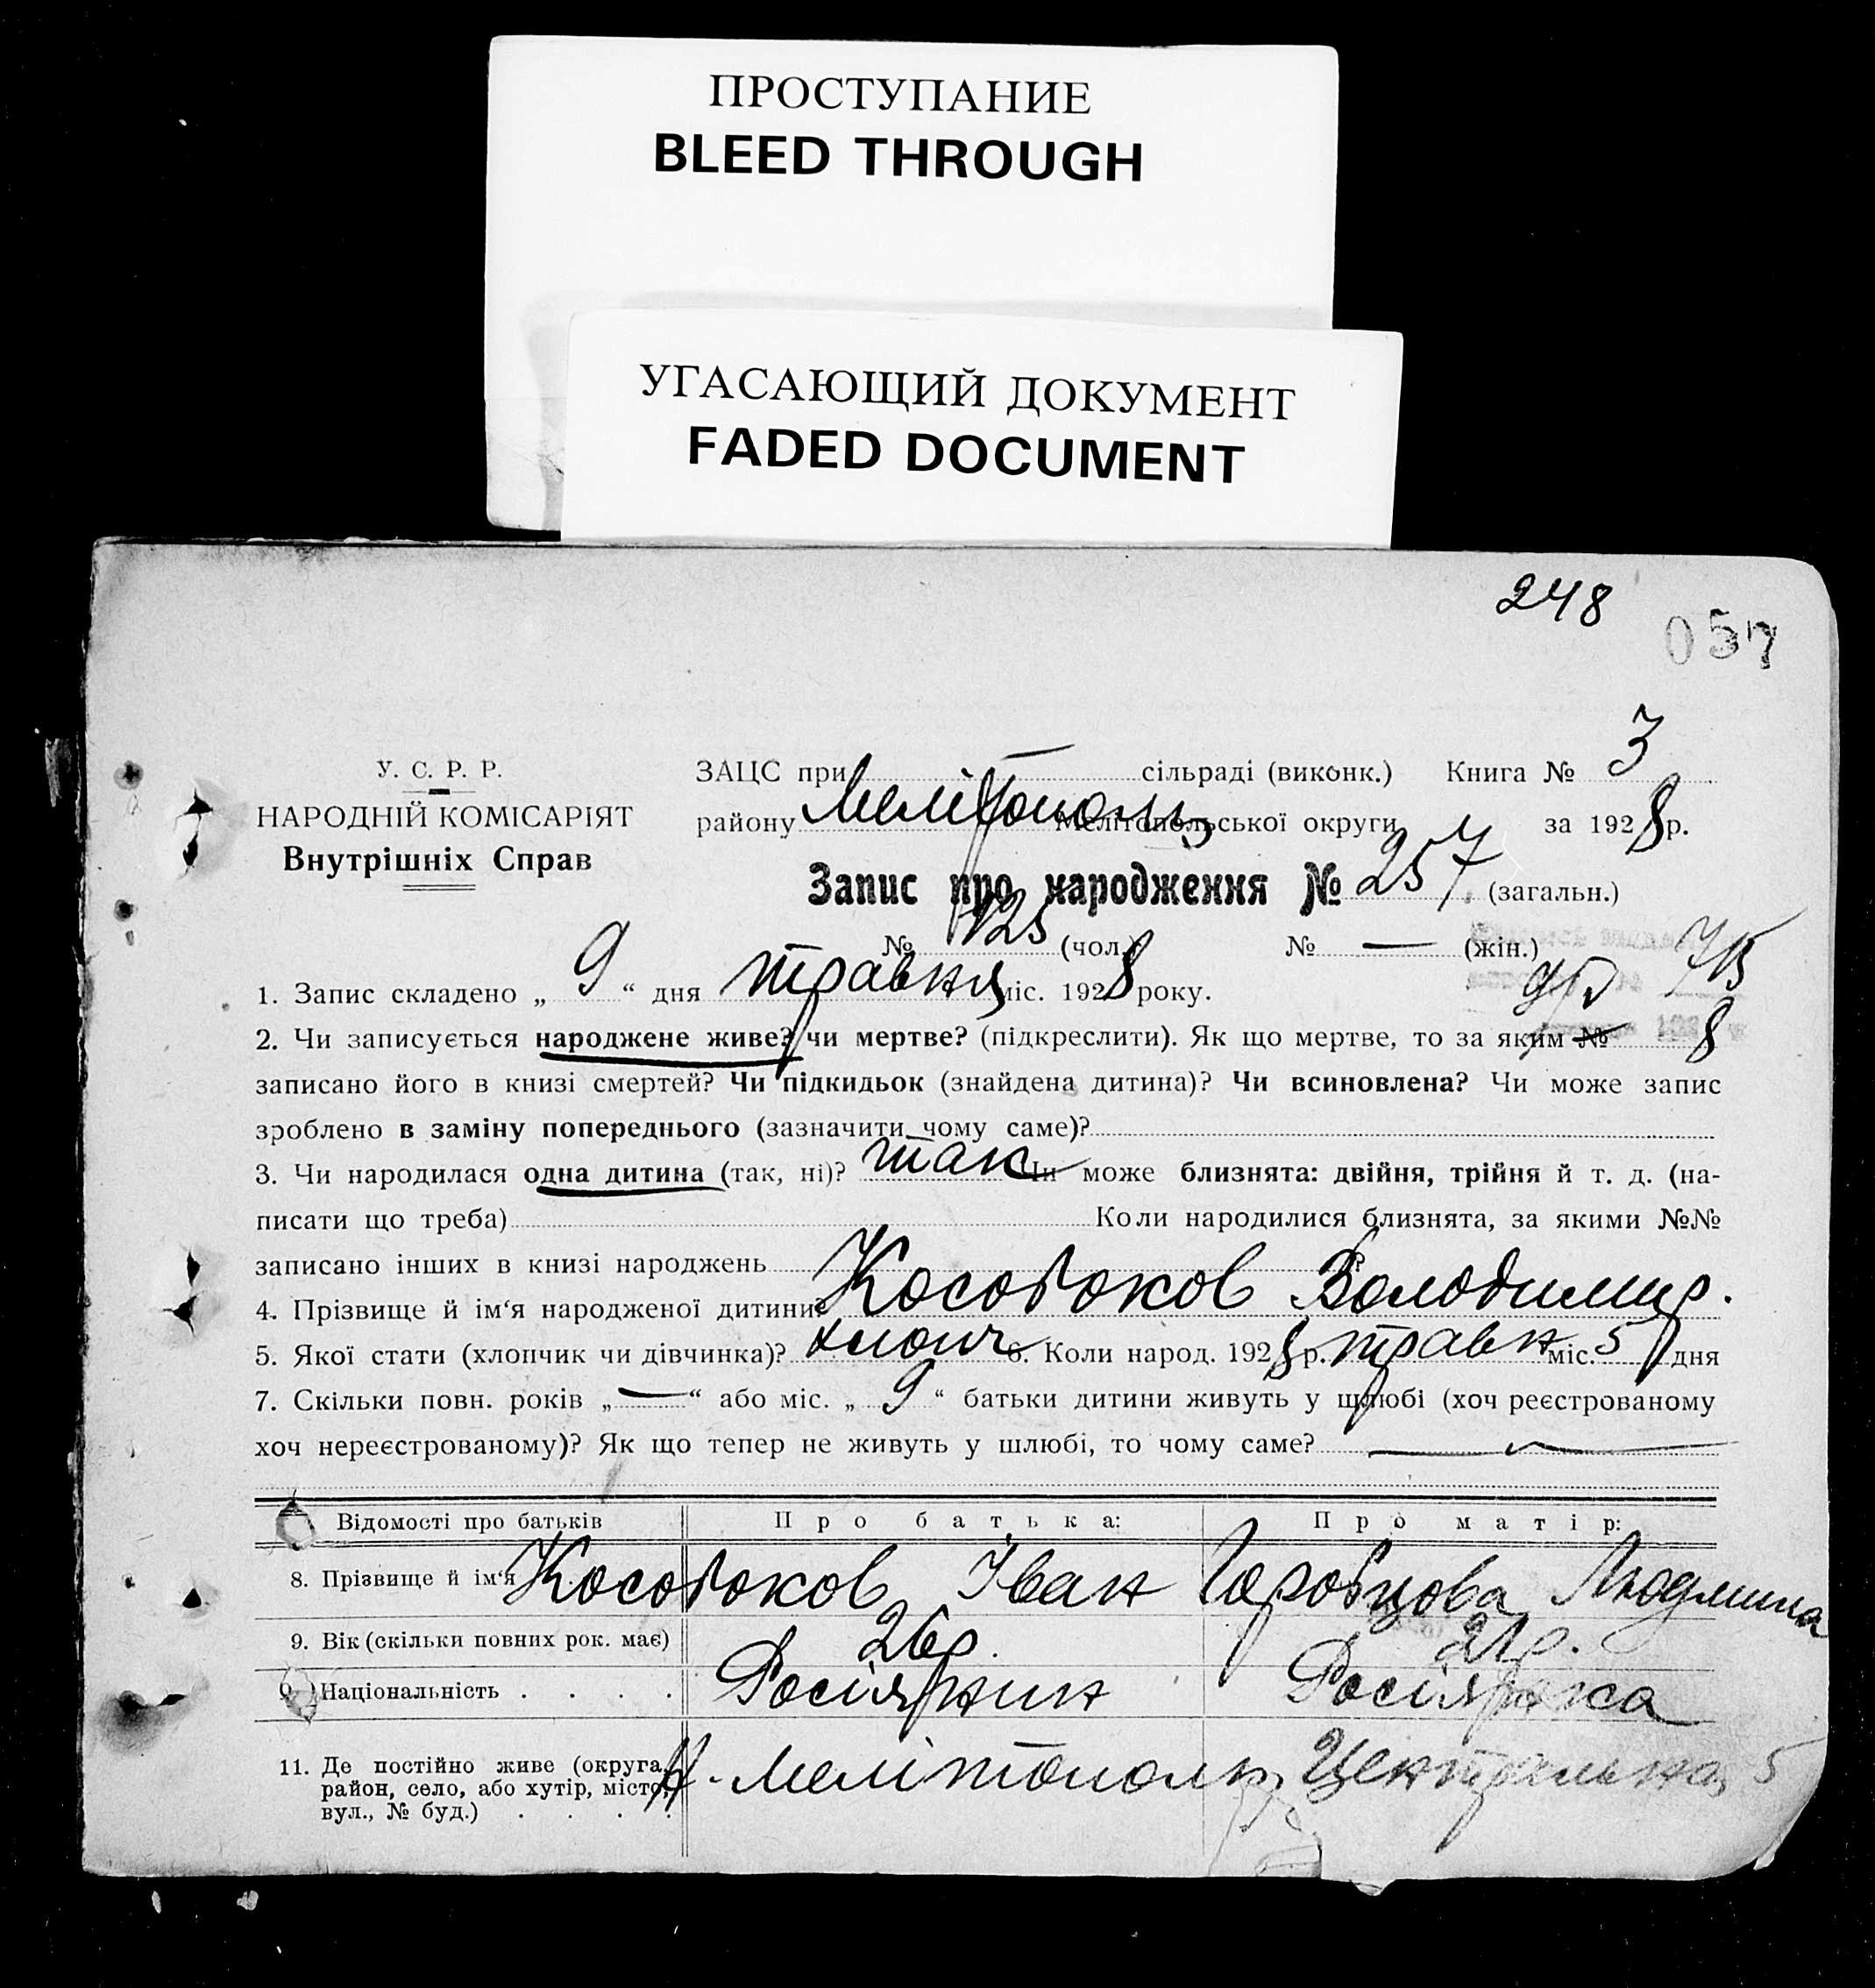 ПРОСТУПАНИЕ
BLEED THROUGH
УГАСАЮЩИЙ ДОКУМЕНТ
FADED DOCUMENT
248
057
У. С. Р. Р.
НАРОДНІЙ КОМІСАРІЯТ
Внутрішніх Справ
ЗАЦС при сільраді (виконк.) Книга № 3
району Мелітополь Мелітопольської округи за 1928 р.
Запис про народження № 257 (загальн.)
№ 125 (чол.) № — (жін.)
1. Запис складено „ 9 “ дня травня міс. 1928 року.
2. Чи записується народжене живе? чи мертве? (підкреслити). Як що мертве, то за яким №
записано його в книзі смертей? Чи підкидьок (знайдена дитина)? Чи всиновлена? Чи може запис
зроблено в заміну попереднього (зазначити чому саме)?
3. Чи народилася одна дитина (так, ні)? так Чи може близнята: двійня, трійня й т. д. (на-
писати що треба) Коли народилися близнята, за якими №№
записано інших в книзі народжень ?
4. Прізвище й ім‘я народженої дитини? Кособоков Володимир.
5. Якої стати (хлопчик чи дівчинка)? хлопч 6. Коли народ. 1928 р. травн міс. 5 дня
7. Скільки повн. років „ — “ або міс. „ 9 “ батьки дитини живуть у шлюбі (хоч реєстрованому
хоч нереєстрованому)? Як що тепер не живуть у шлюбі, то чому саме? —
Відомості про батьків Про батька: Про матір:
8. Прізвище й ім‘я Кособоков Іван Горобцова Людмила
9. Вік (скільки повних рок. має) 26 р. 21 р.
Національність . . . . Росіянин Росіянка
11. Де постійно живе (округа, район, село, або хутір, місто, вул., № буд.) . . . . м. Мелітополь, Центральна, 5